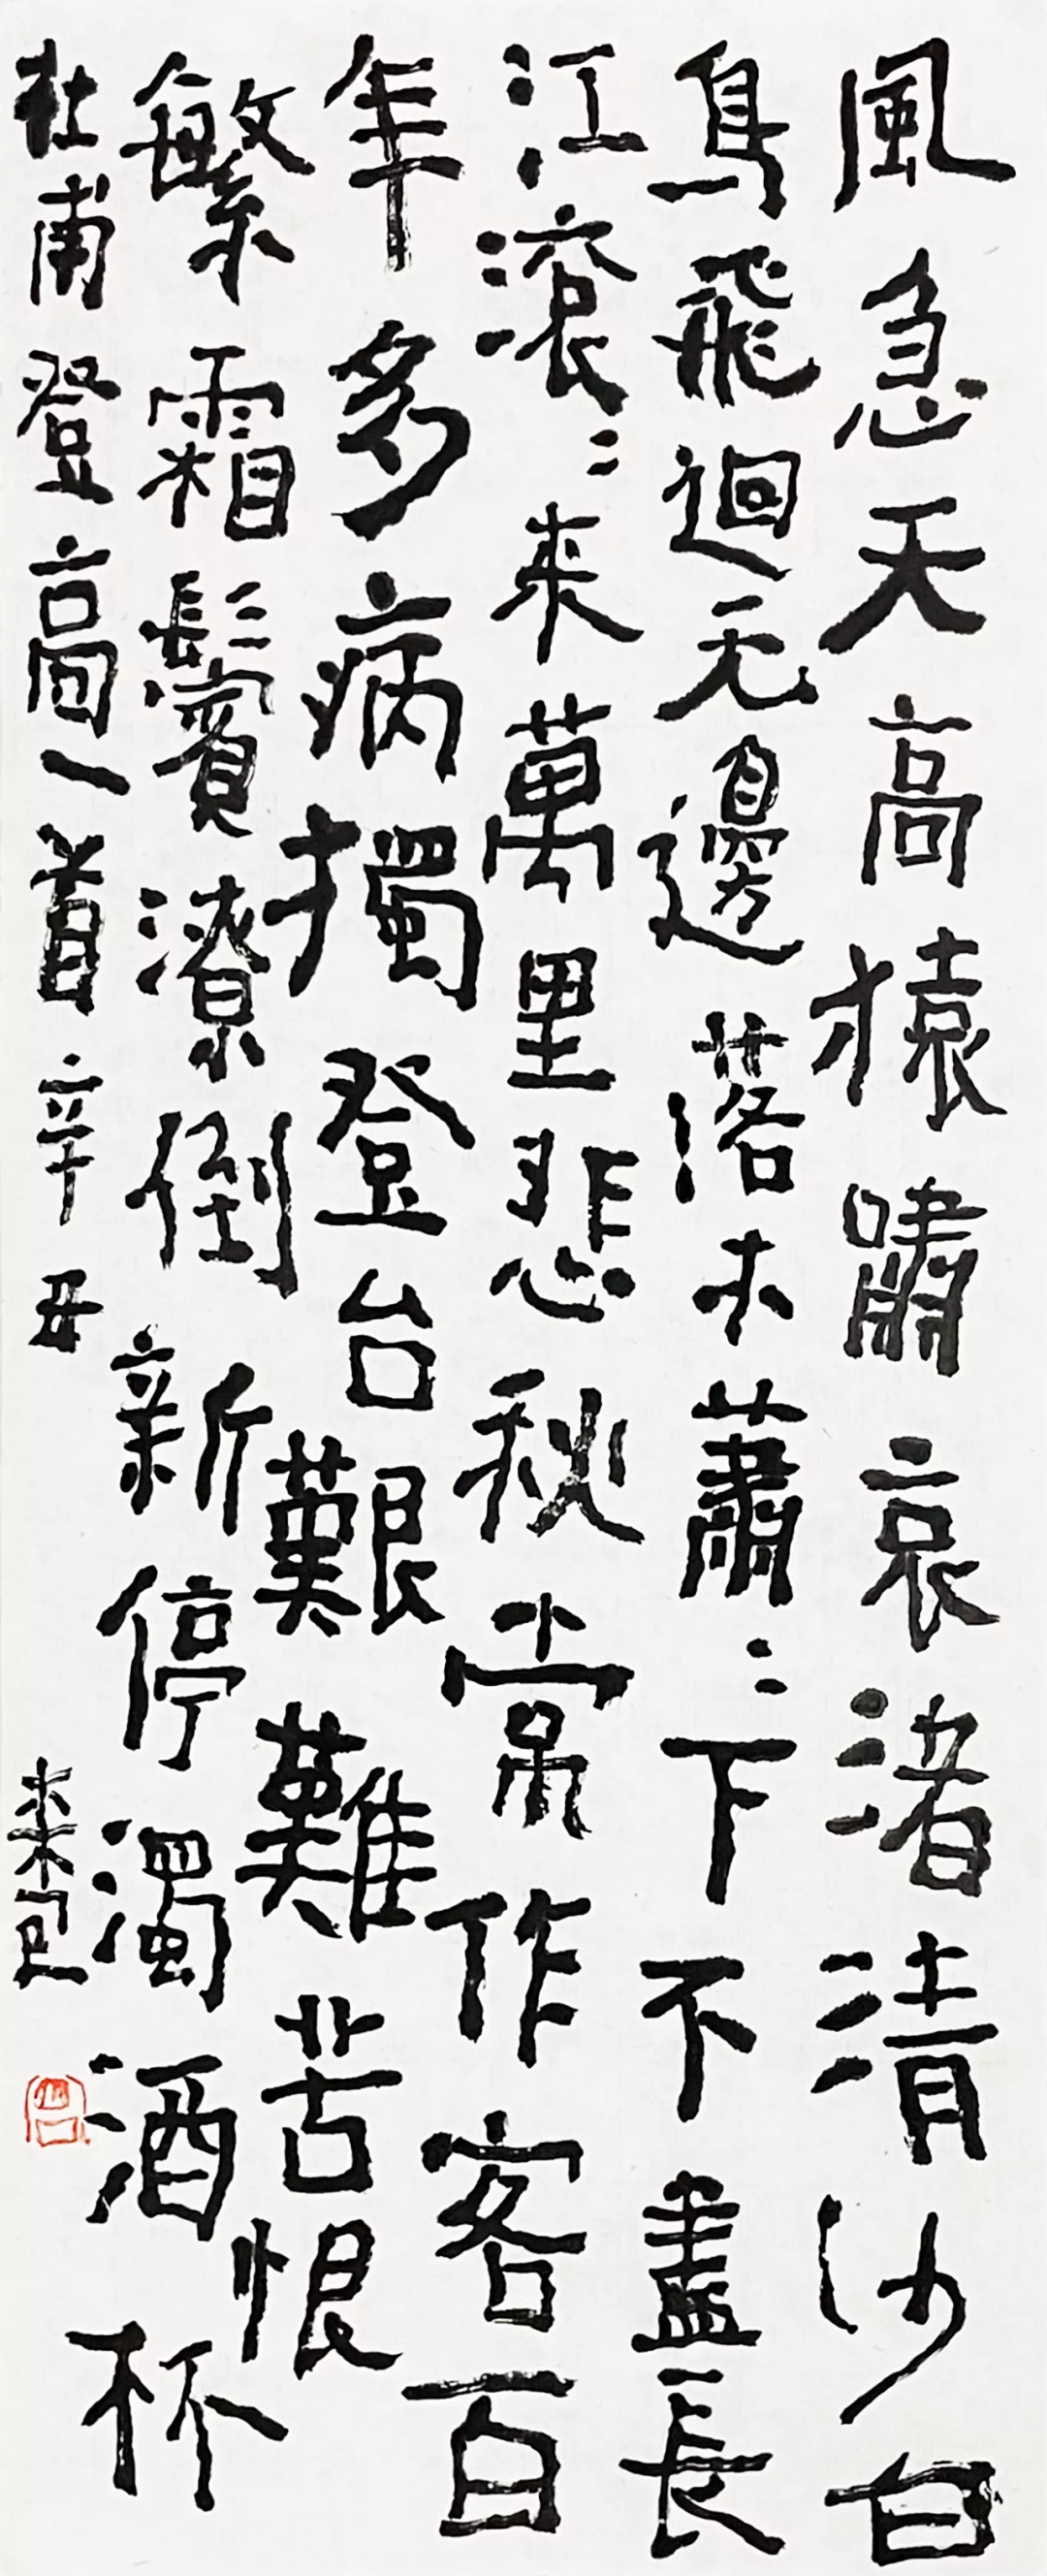 風急天高猿嘯哀渚清沙白
鳥飛迴无邊落木蕭〻下不盡長
江滾〻来萬里悲秋常作客百
年多病獨登台艱難苦恨
繁霜鬢潦倒新停濁酒杯
杜甫登高一首辛丑